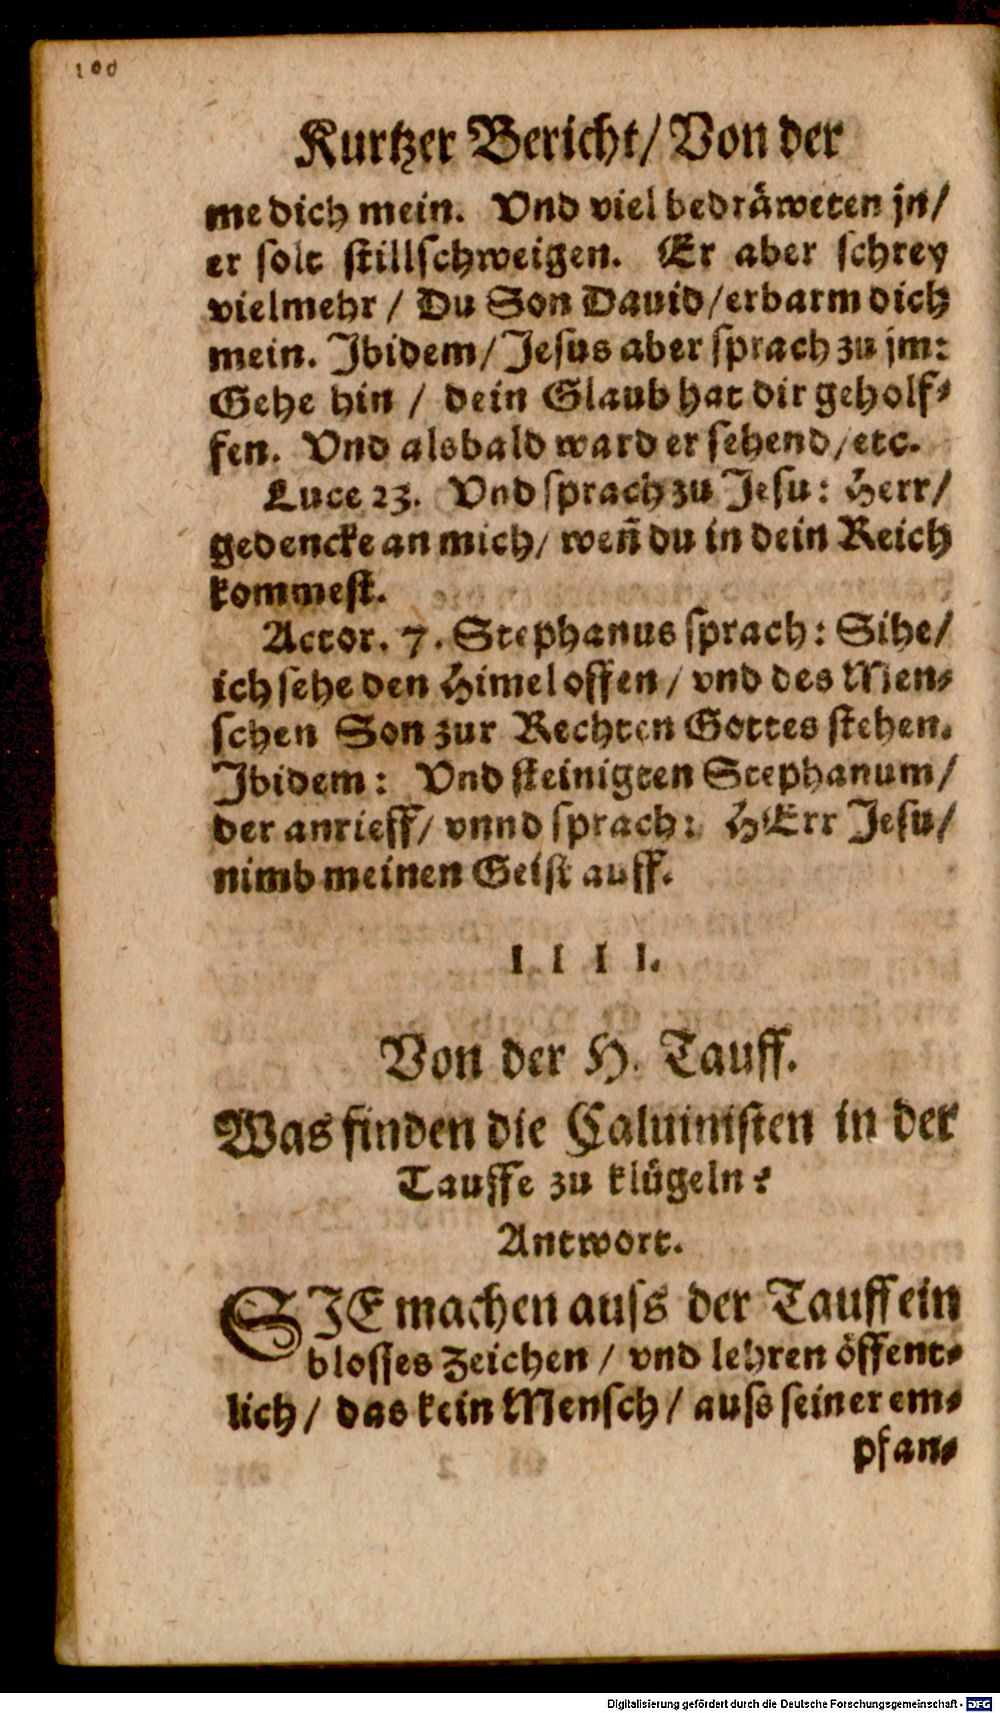 100
Kurtzer Bericht/ Von der
me dich mein. Vnd viel bedräweten jn/
er solt stillschweigen. Er aber schrey
vielmehr / Du Son Dauid/ erbarm dich
mein. Ibidem/ Jesus aber sprach zu jm:
Gehe hin / dein Glaub hat dir geholf-
fen. Vnd alsbald ward er sehend/ etc.
Luce 23. Vnd sprach zu Jesu: Herr/
gedencke an mich/ weñ du in dein Reich
kommest.
Actor. 7. Stephanus sprach: Sihe/
ich sehe den Himel offen / vnd des Men-
schen Son zur Rechten Gottes stehen.
Ibidem: Vnd steinigten Stephanum/
der anrieff/ vnnd sprach: HErr Jesu/
nimb meinen Geist auff.
I I I I.
Von der H. Tauff.
Was finden die Caluinisten in der
Tauffe zu klügeln?
Antwort.
SIE machen auss der Tauff ein
blosses Zeichen / vnd lehren öffent-
lich/ das kein Mensch / auss seiner em-
pfan-
Digitalisierung gefördert durch die Deutsche Forschungsgemeinschaft - DFG